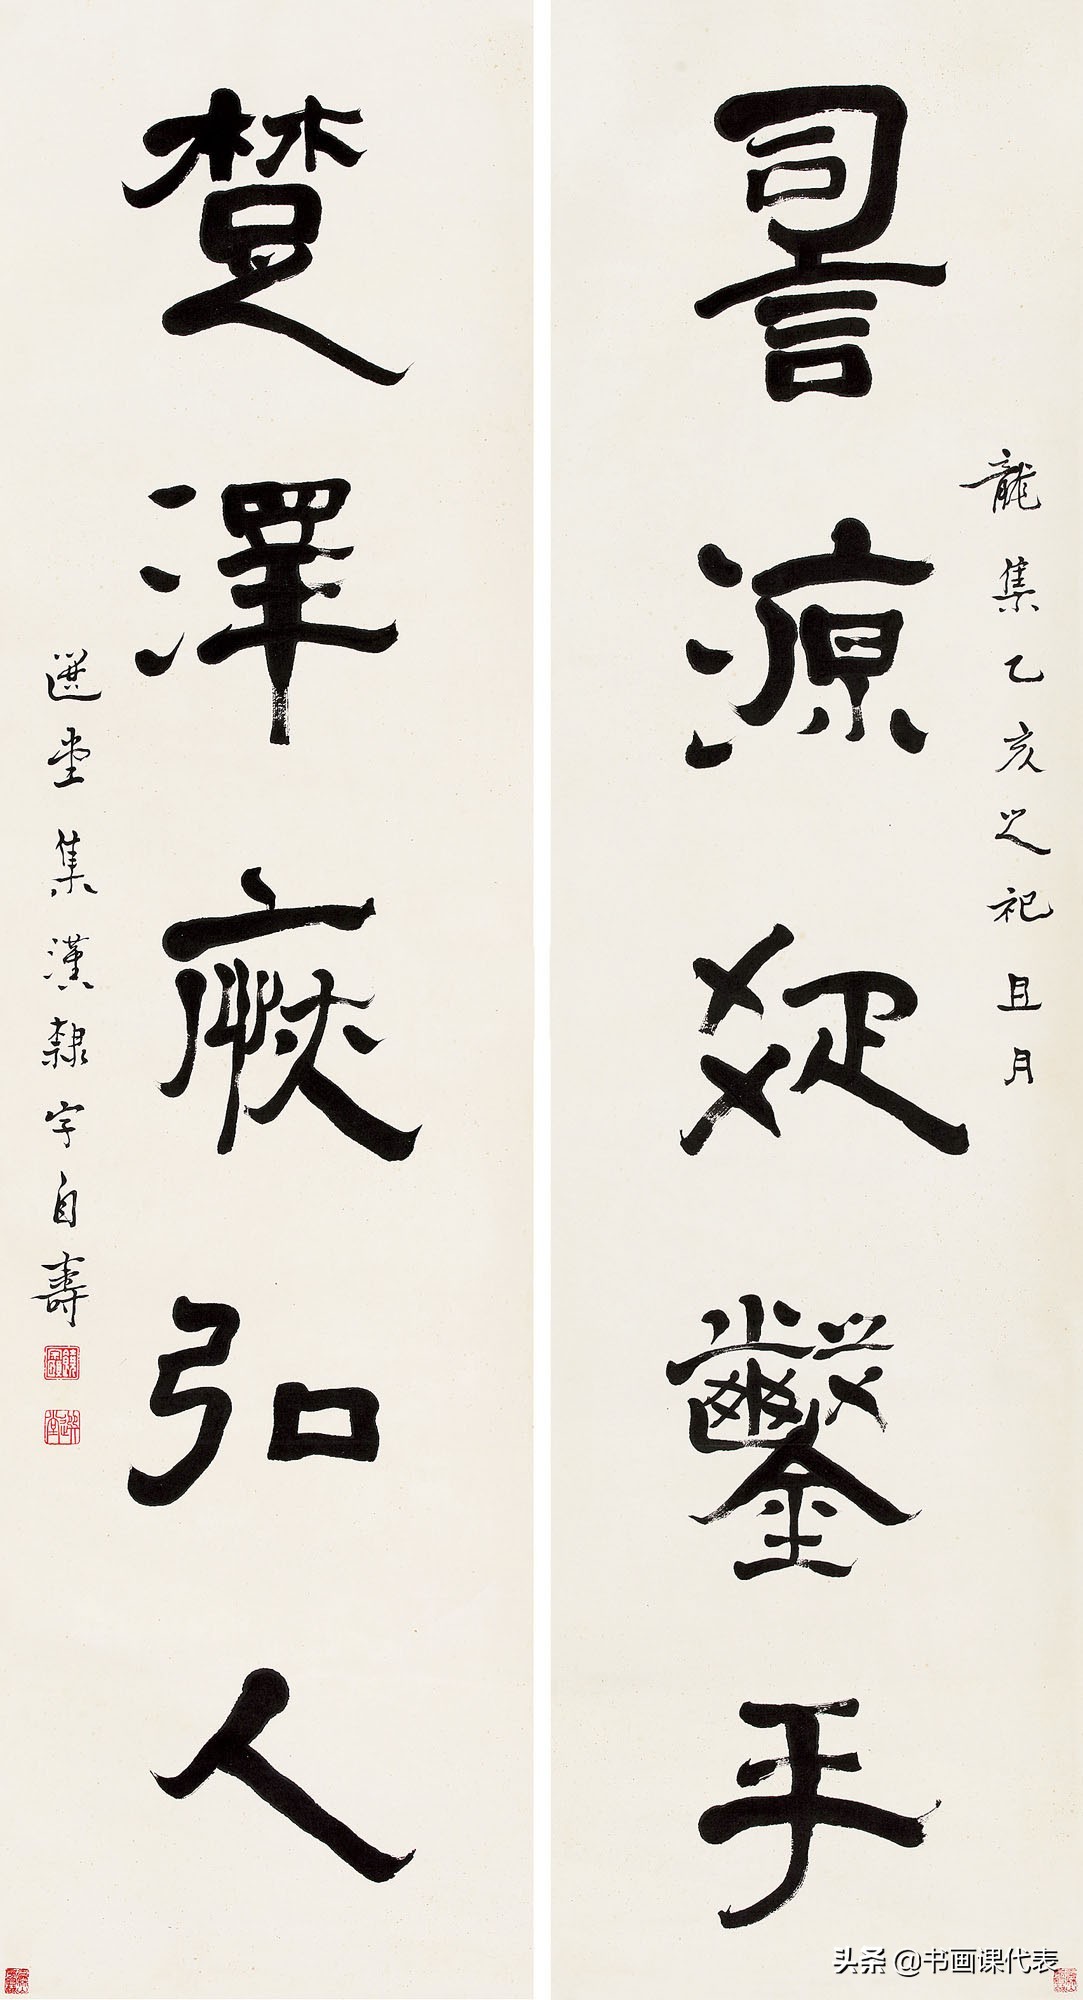 䛐源疏鑿手
龍集乙亥之祀且月
楚澤厥弘人
選堂集漢隸字自壽
選堂
头条 @书画课代表